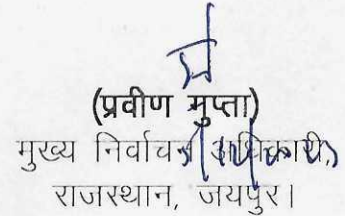 (प्रवीण गुप्ता)
मुख्य निर्वाचन अधिकारी,
राजस्थान, जयपुर।